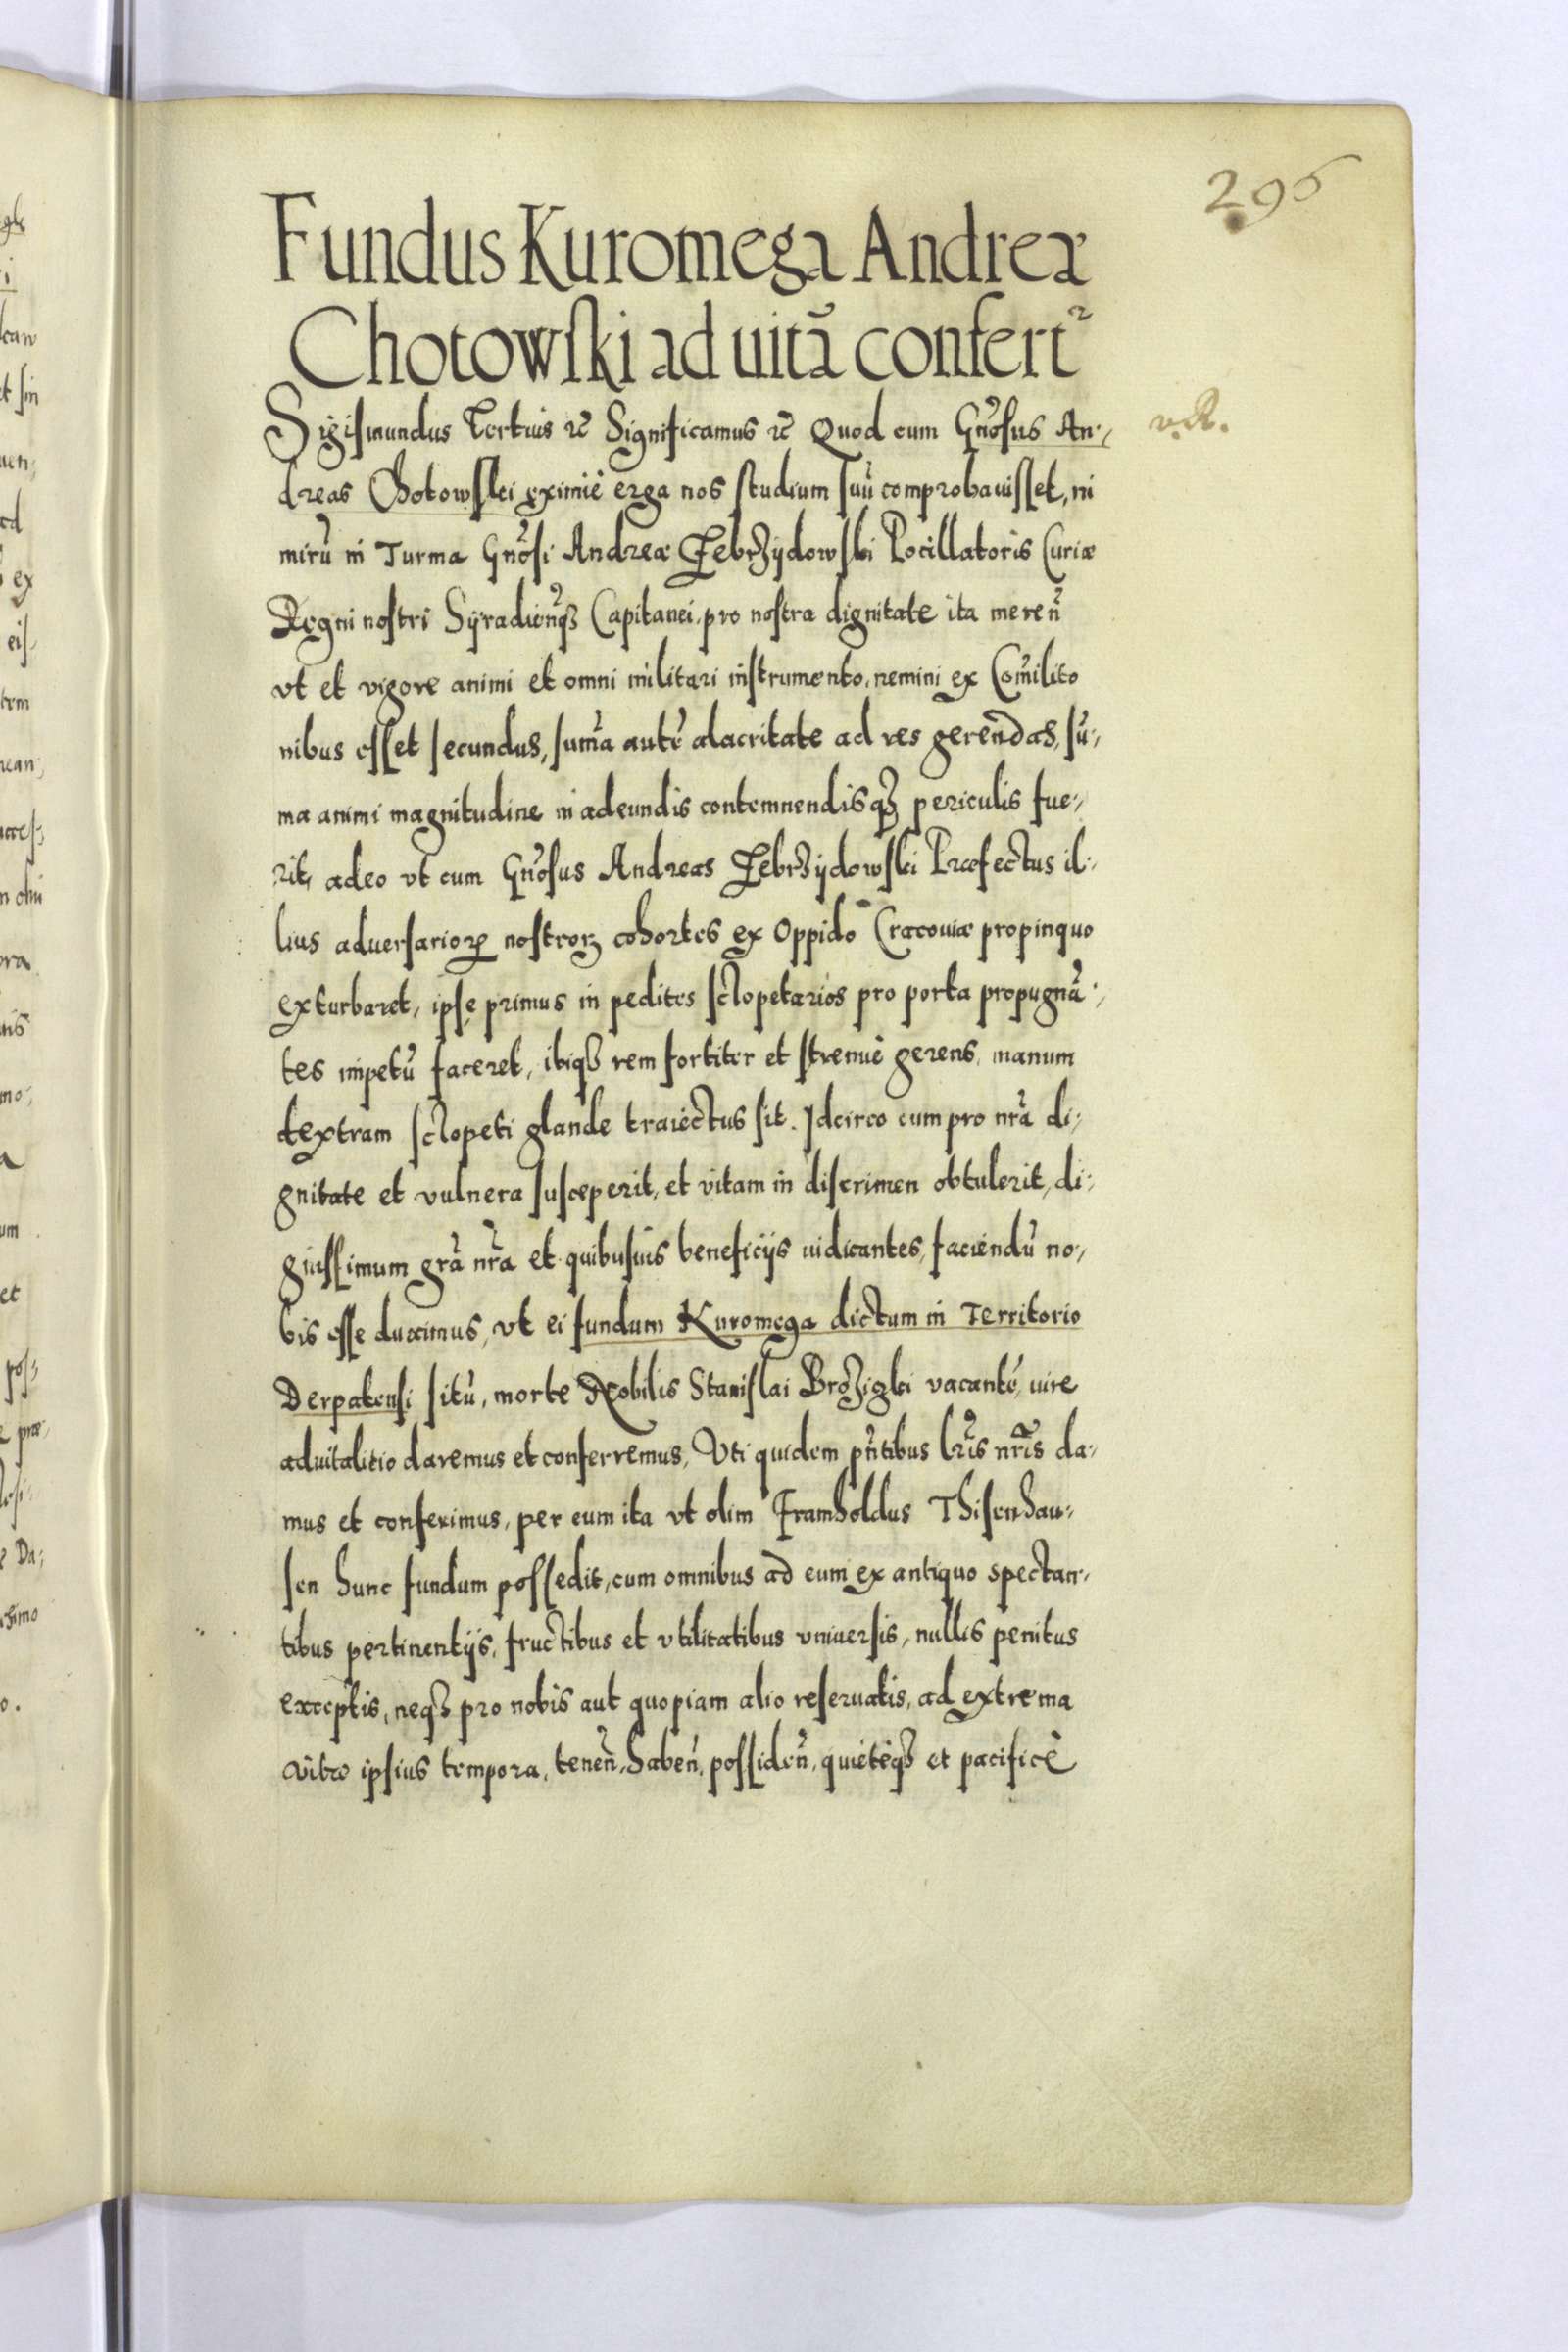 296
Fundus Kuromega Andreæ
Chotowski ad uitã confert²
Sigismundus Tertius etc̃ Significamus etc̃ Quod cum Gn̄osus An-
v. R.
dreas Chotowski eximiè erga nos studium suũ comprobauisset, ni
mirũ in Turma Gn̄osi Andreæ Zebrzÿdowski Pocillatoris Curiæ
Regni nostri Sÿradien̄qȝ Capitanei, pro nostra dignitate ita meren̄
vt et vigore animi et omni militari instrumento, nemini ex Com̃ilito
nibus esset secundus, sum̃a autẽ alacritate ad res gerendas, sũ-
ma animi magnitudine in adeundis contemnendisqȝ periculis fue-
rit, adeo vt cum Gn̄osus Andreas Zebrzÿdowski Præfectus il-
lius aduersarioꝝ nostroꝝ cohortes ex Oppido Cracouiæ propinquo
exturbaret, ipse primus in pedites sclopetarios pro porta propugnã-
tes impetũ faceret, ibiqȝ rem fortiter et strenuè gerens, manum
dextram sclopeti glande traiectus sit. Idcirco cum pro nr̃a di-
gnitate et vulnera susceperit, et vitam in discrimen obtulerit, di-
gnissimum gr̃a nr̃a et quibusuis beneficijs iudicantes, faciendũ no-
bis esse duximus, vt ei fundum Kuromega dictum in Territorio
Derpatensi sitũ, morte Nobilis Stanislai Brozigki vacantẽ, iure
aduitalitio daremus et conferremus, Vti quidem pn̄tibus lr̃is nr̃is da-
mus et conferimus, per eum ita vt olim Framholdus Thisenhau-
sen hunc fundum possedit, cum omnibus ad eum ex antiquo spectan-
tibus pertinentijs, fructibus et vtilitatibus vniuersis, nullis penitus
exceptis, neqȝ pro nobis aut quopiam alio reseruatis, ad extrema
vitæ ipsius tempora, tenen̄, haben̄, possiden̄, quietèqȝ et pacificè